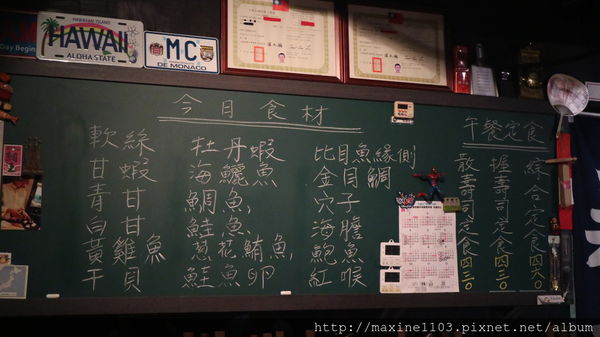 Day Begin
HAWAIIAN ISLAND
HAWAII
ALOHA STATE
MC
DE MONACO
今日食材
軟絲
甘蝦
青甘
白甘
黃雞魚
干貝
牡丹蝦
海鱺魚
鯛魚
鮭魚
蔥花鮪魚
鮭魚卵
比目魚緣側
金目鯛
穴子
海膽
鮑魚
紅喉
午餐定食
綜合定食 四六〇
握壽司定食 四三〇
散壽司定食 四三〇
http://maxine1103.pixnet.net/album